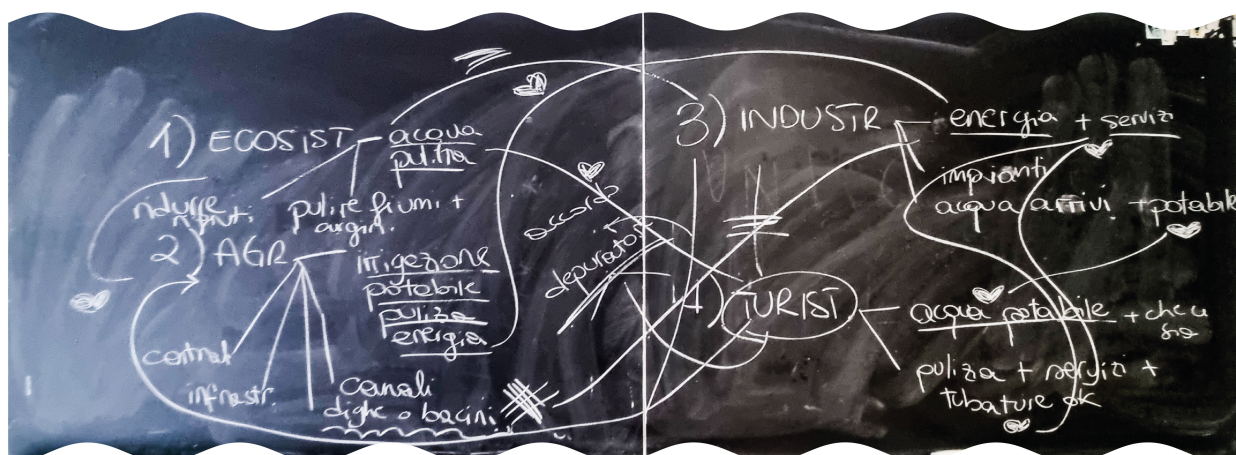 1) ECOSIST - acqua
pulita
ridurre
rifiuti
pulire fiumi +
argini
2) AGR
irrigazione
potabile
pulizia
energia
infrastr.
canali
dighe o bacini
accordo
depurator
3) INDUSTR - energia + servizi
impianti
acqua arrivi + potabile
4) TURIST - acqua potabile + che ci
sia
pulizia + servizi +
tubature ok